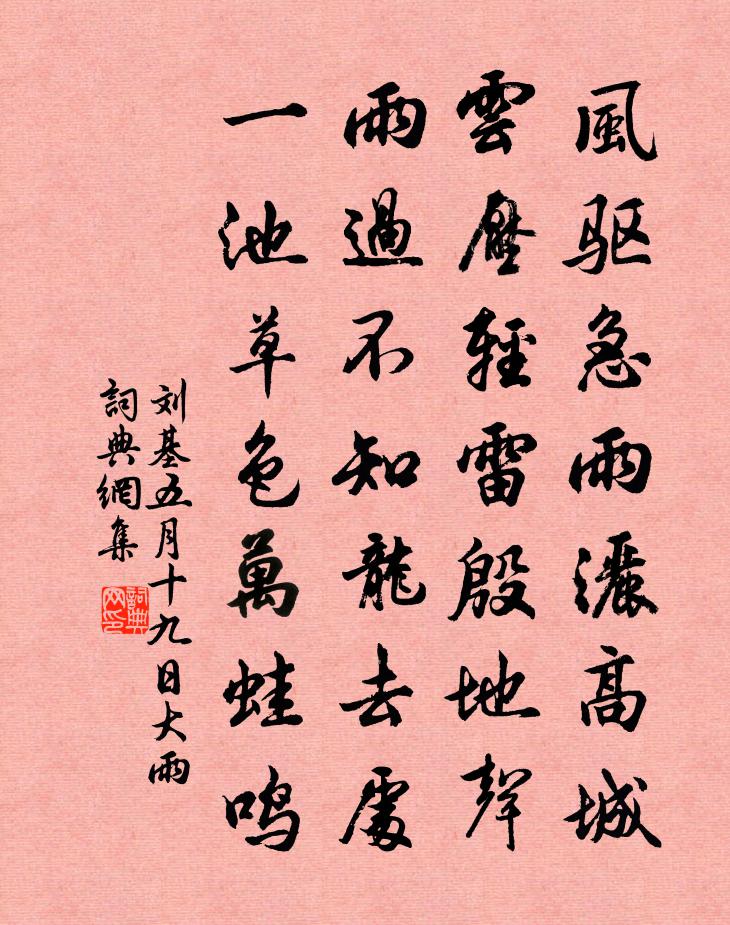 風驱急雨灑高城
雲壓輕雷殷地聲
雨過不知龍去處
一池草色萬蛙鸣
刘基五月十九日大雨
詞典網集
詞典网印